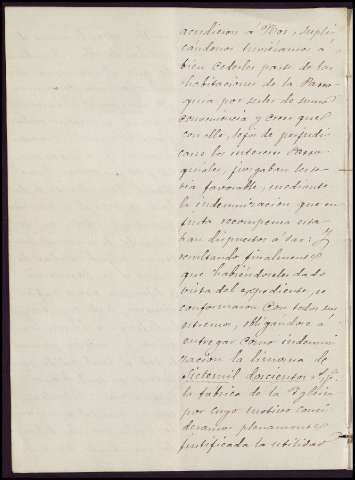 acudieron á Nos, supli-
cándonos tuviéramos á
bien cederles parte de las
habitaciones de la Parro-
quia por serles de suma
conveniencia y creen que
con ello, lejos de perjudi-
carse los intereses Parro-
quiales, juzgaban les se-
ria favorable, mediante
la indemnizacion que en
justa recompensa esta-
ban dispuestos á dar: Y
resultando finalmente
que habiéndoseles dado
vista del expediente, se
conformaron con todos sus
estremos, obligándose á
entregar como indemni-
zación la limosna de
sietemil doscientos
la fábrica de la Iglesia
por cuyo motivo consi-
deramos plenamente
justificada la utilidad